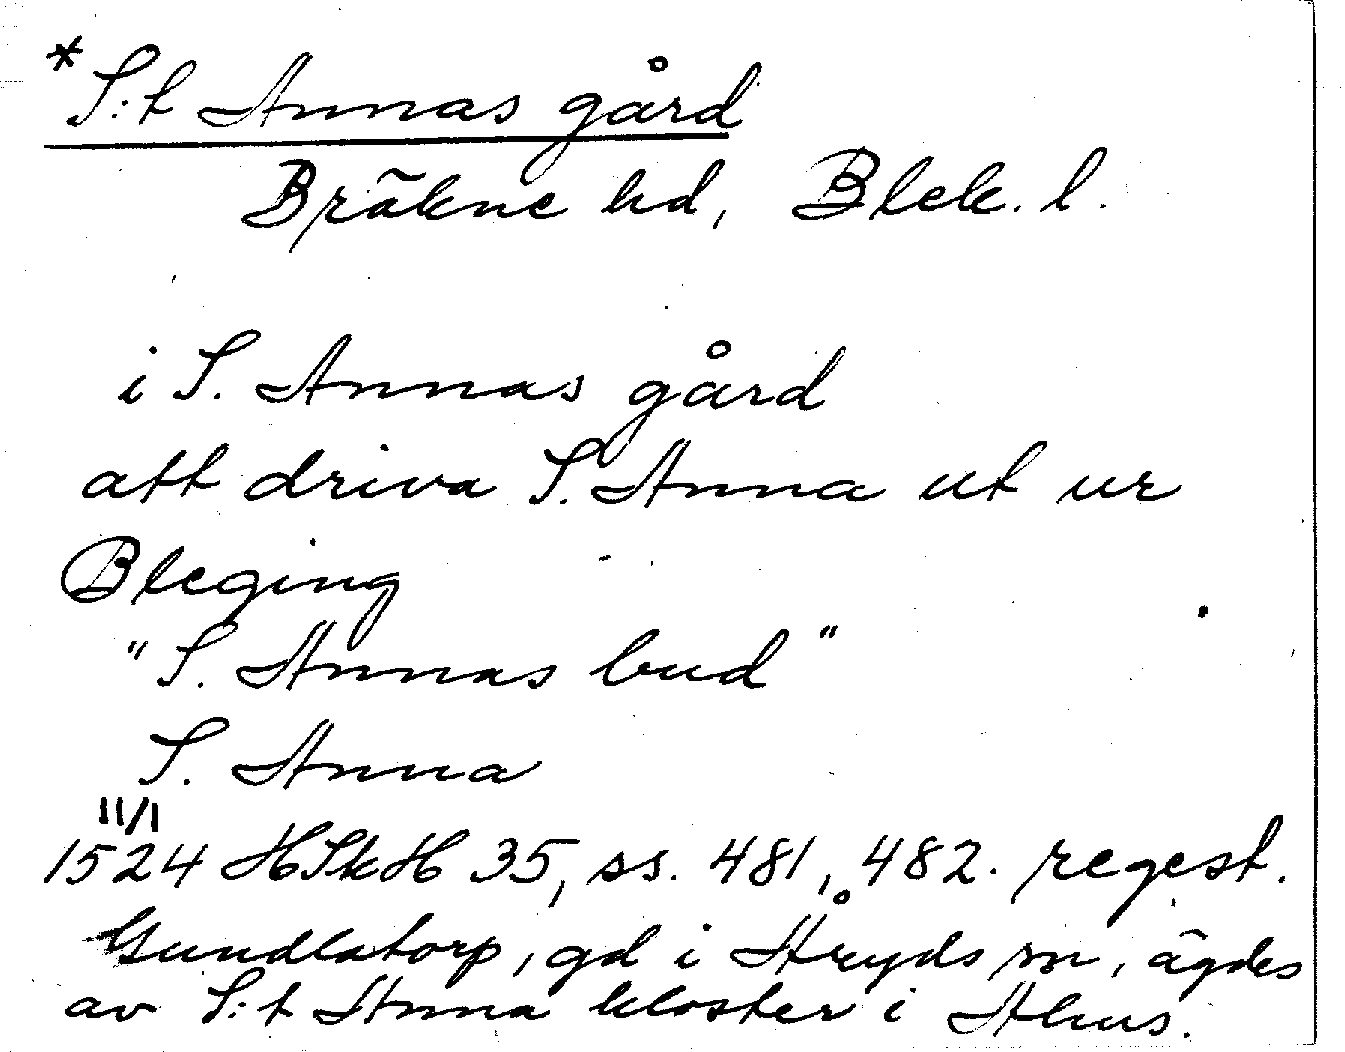 *S:t Annas gård
Bräkne hd, Blek. l.
i S. Annas gård
att driva S. Anna ut ur
Bleging
"S. Annas bud"
S. Anna
11/1
1524 HSkH 35, ss. 481, 482. regest.
Gundlatorp, gd i Åryds sn, ägdes
av S:t Anna kloster i Ahus.